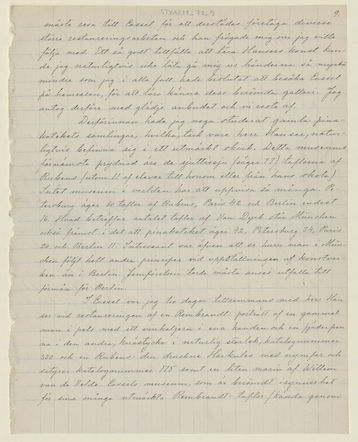 9.
måste resa till Cassel för att derstädes företaga diverse
större restaureringsarbeten och han frågade mig om jag ville
följa med. Ett så godt tillfälle att lära Hausers konst kun-
de jag naturligtvis icke låta gå mig ur händerna så mycket
mindre som jag i alla fall hade beslutat att besöka Cassel
på hemresan, för att lära känna dess berömda galleri. Jag
antog derföre med glädje anbudet och vi reste af.
Derförinnan hade jag noga studerat gamla pina-
kotekets samlingar, hvilka, tack vare herr Hauser, natur-
ligtvis befinna sig i ett utmärkt skick. Detta museums
förnämsta prydnad äro de sjuttiosju (säger 77) taflorna af
Rubens (utom 11 af elever till honom eller från hans skola).
Intet museum i verlden har att uppvisa så många. Pe-
tersburg äger 60 taflor af Rubens, Paris 42 och Berlin endast
16. Hvad beträffar antalet taflor af Van Dyck står München
också främst i det att pinakoteket äger 72, Petersburg 34, Paris
20 och Berlin 11. Intressant var äfven att se huru man i Mün-
chen följt helt andra principer vid uppställningen af konstver-
ken än i Berlin. Jemförelsen torde måsta anses utfalla till
förmån för Berlin.
I Cassel var jag tio dagar tillsammans med herr Hau-
ser vid restaureringen af en Rembrandt: porträtt af en gammal
man i pels med ett vinkeljern i ena handen och en fjäderpen-
na i den andra, knästycke i naturlig storlek, katalognummer
og en Rubens: den druckne Herkules med nymfer och
satyrer katalognummer 175 samt en liten marin af Willem
van de Velde. Cassels museum, som är berömdt synnerhet
för sina många utmärkta Rembrandt-taflor (kända genom